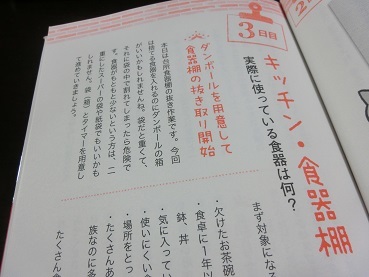 3日目
キッチン・食器棚
実際に使っている食器は何？
ダンボールを用意して
食器棚の抜き取り開始
本日は台所食器棚の抜き作業です。今回
は捨てる食器を入れるのにダンボールの箱
がいいかもしれませんね。袋だと重くて、
それに袋の中で割れてしまったら危険で
す。食器がもともと少ないという方は、二
重にしたスーパーの袋や紙袋でもいいかも
しれません。袋（箱）とタイマーを用意し
て進めていきましょう。
まず対象になる
・欠けたお茶碗
・食卓に1年以
鉢、丼
・気に入ってい
・使いにくい
・場所をとっ
・たくさんあ
族なのに多
たくさん